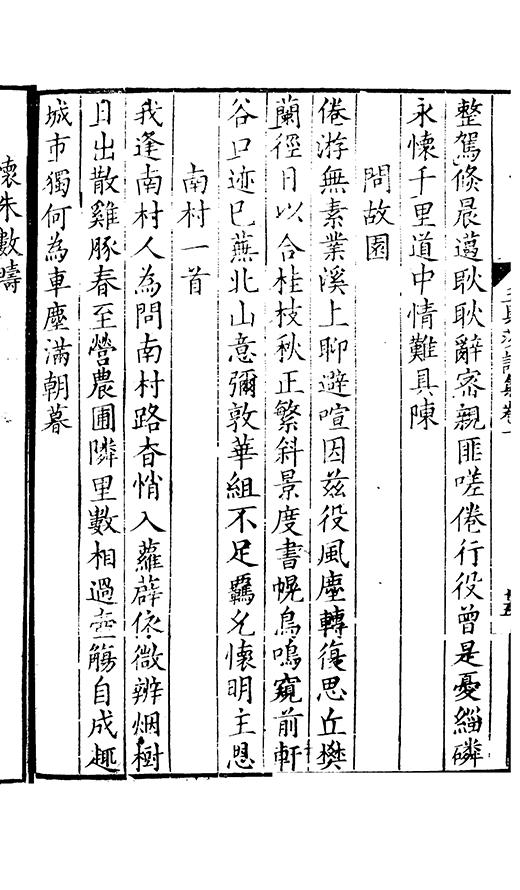 整駕倏晨邁耿耿辭密親匪嗟倦行役曾是憂緇磷
永懷千里道中情難具陳
問故園
倦游無素業溪上聊避喧因兹役風塵轉復思丘樊
蘭徑日以合桂枝秋正繁斜景度書幌鳥鳴窺前軒
谷口迹已蕪北山意彌敦華組不足羈允懷明主恩
南村一首
我逢南村人為問南村路杳悄入蘿薜依微辨烟樹
日出散雞豚春至營農圃隣里數相過壺觴自成趣
城市獨何為車塵滿朝暮
懷朱數疇